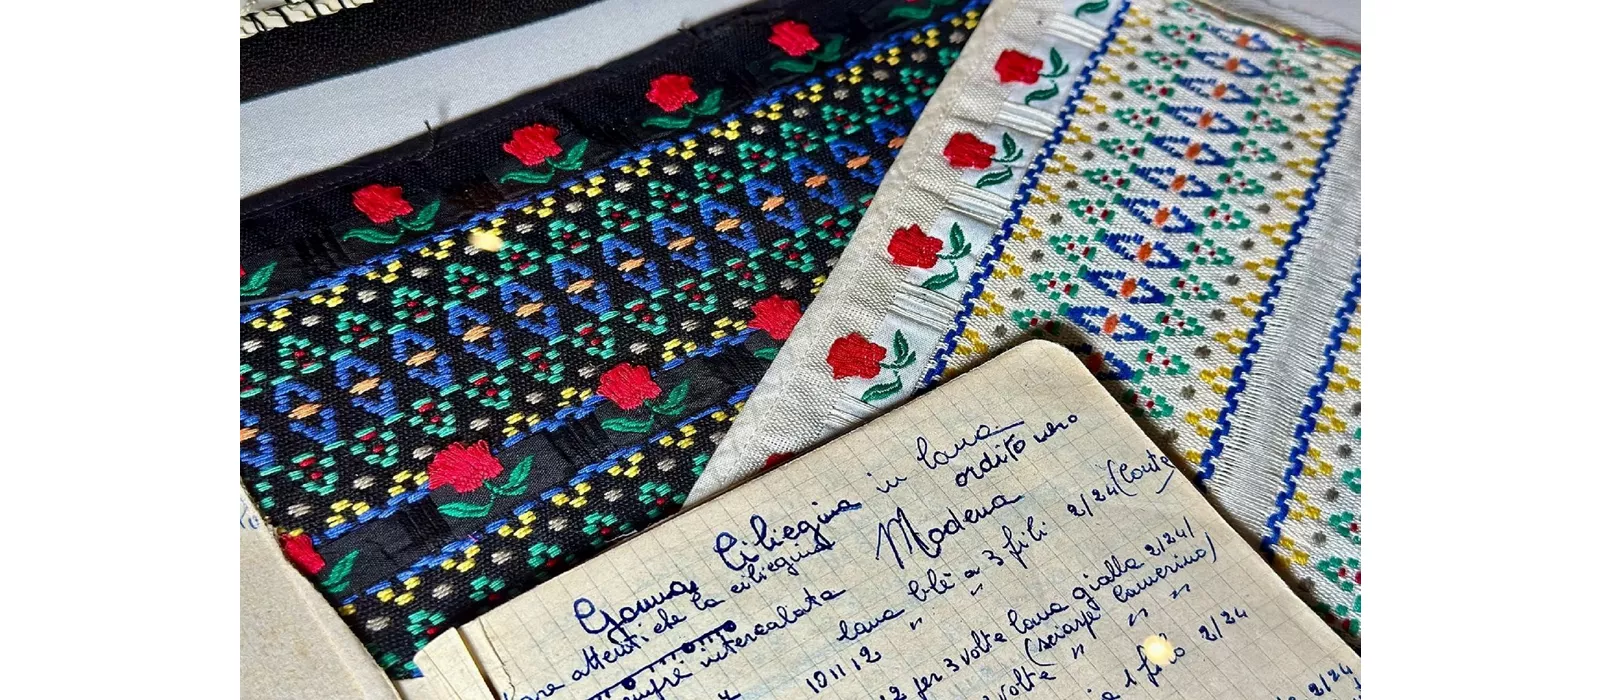 Gonna Ciliegina in lana
ordito nero
fare attenti che la ciliegina Modena
sempre intercalata lana blè a 3 fili 2/24 (Conte
10 11 12 " "
2 per 3 volte lana gialla 2/24/
volte (sciarpe Camerino)
" " "
a 1 filo 2/24
2/24